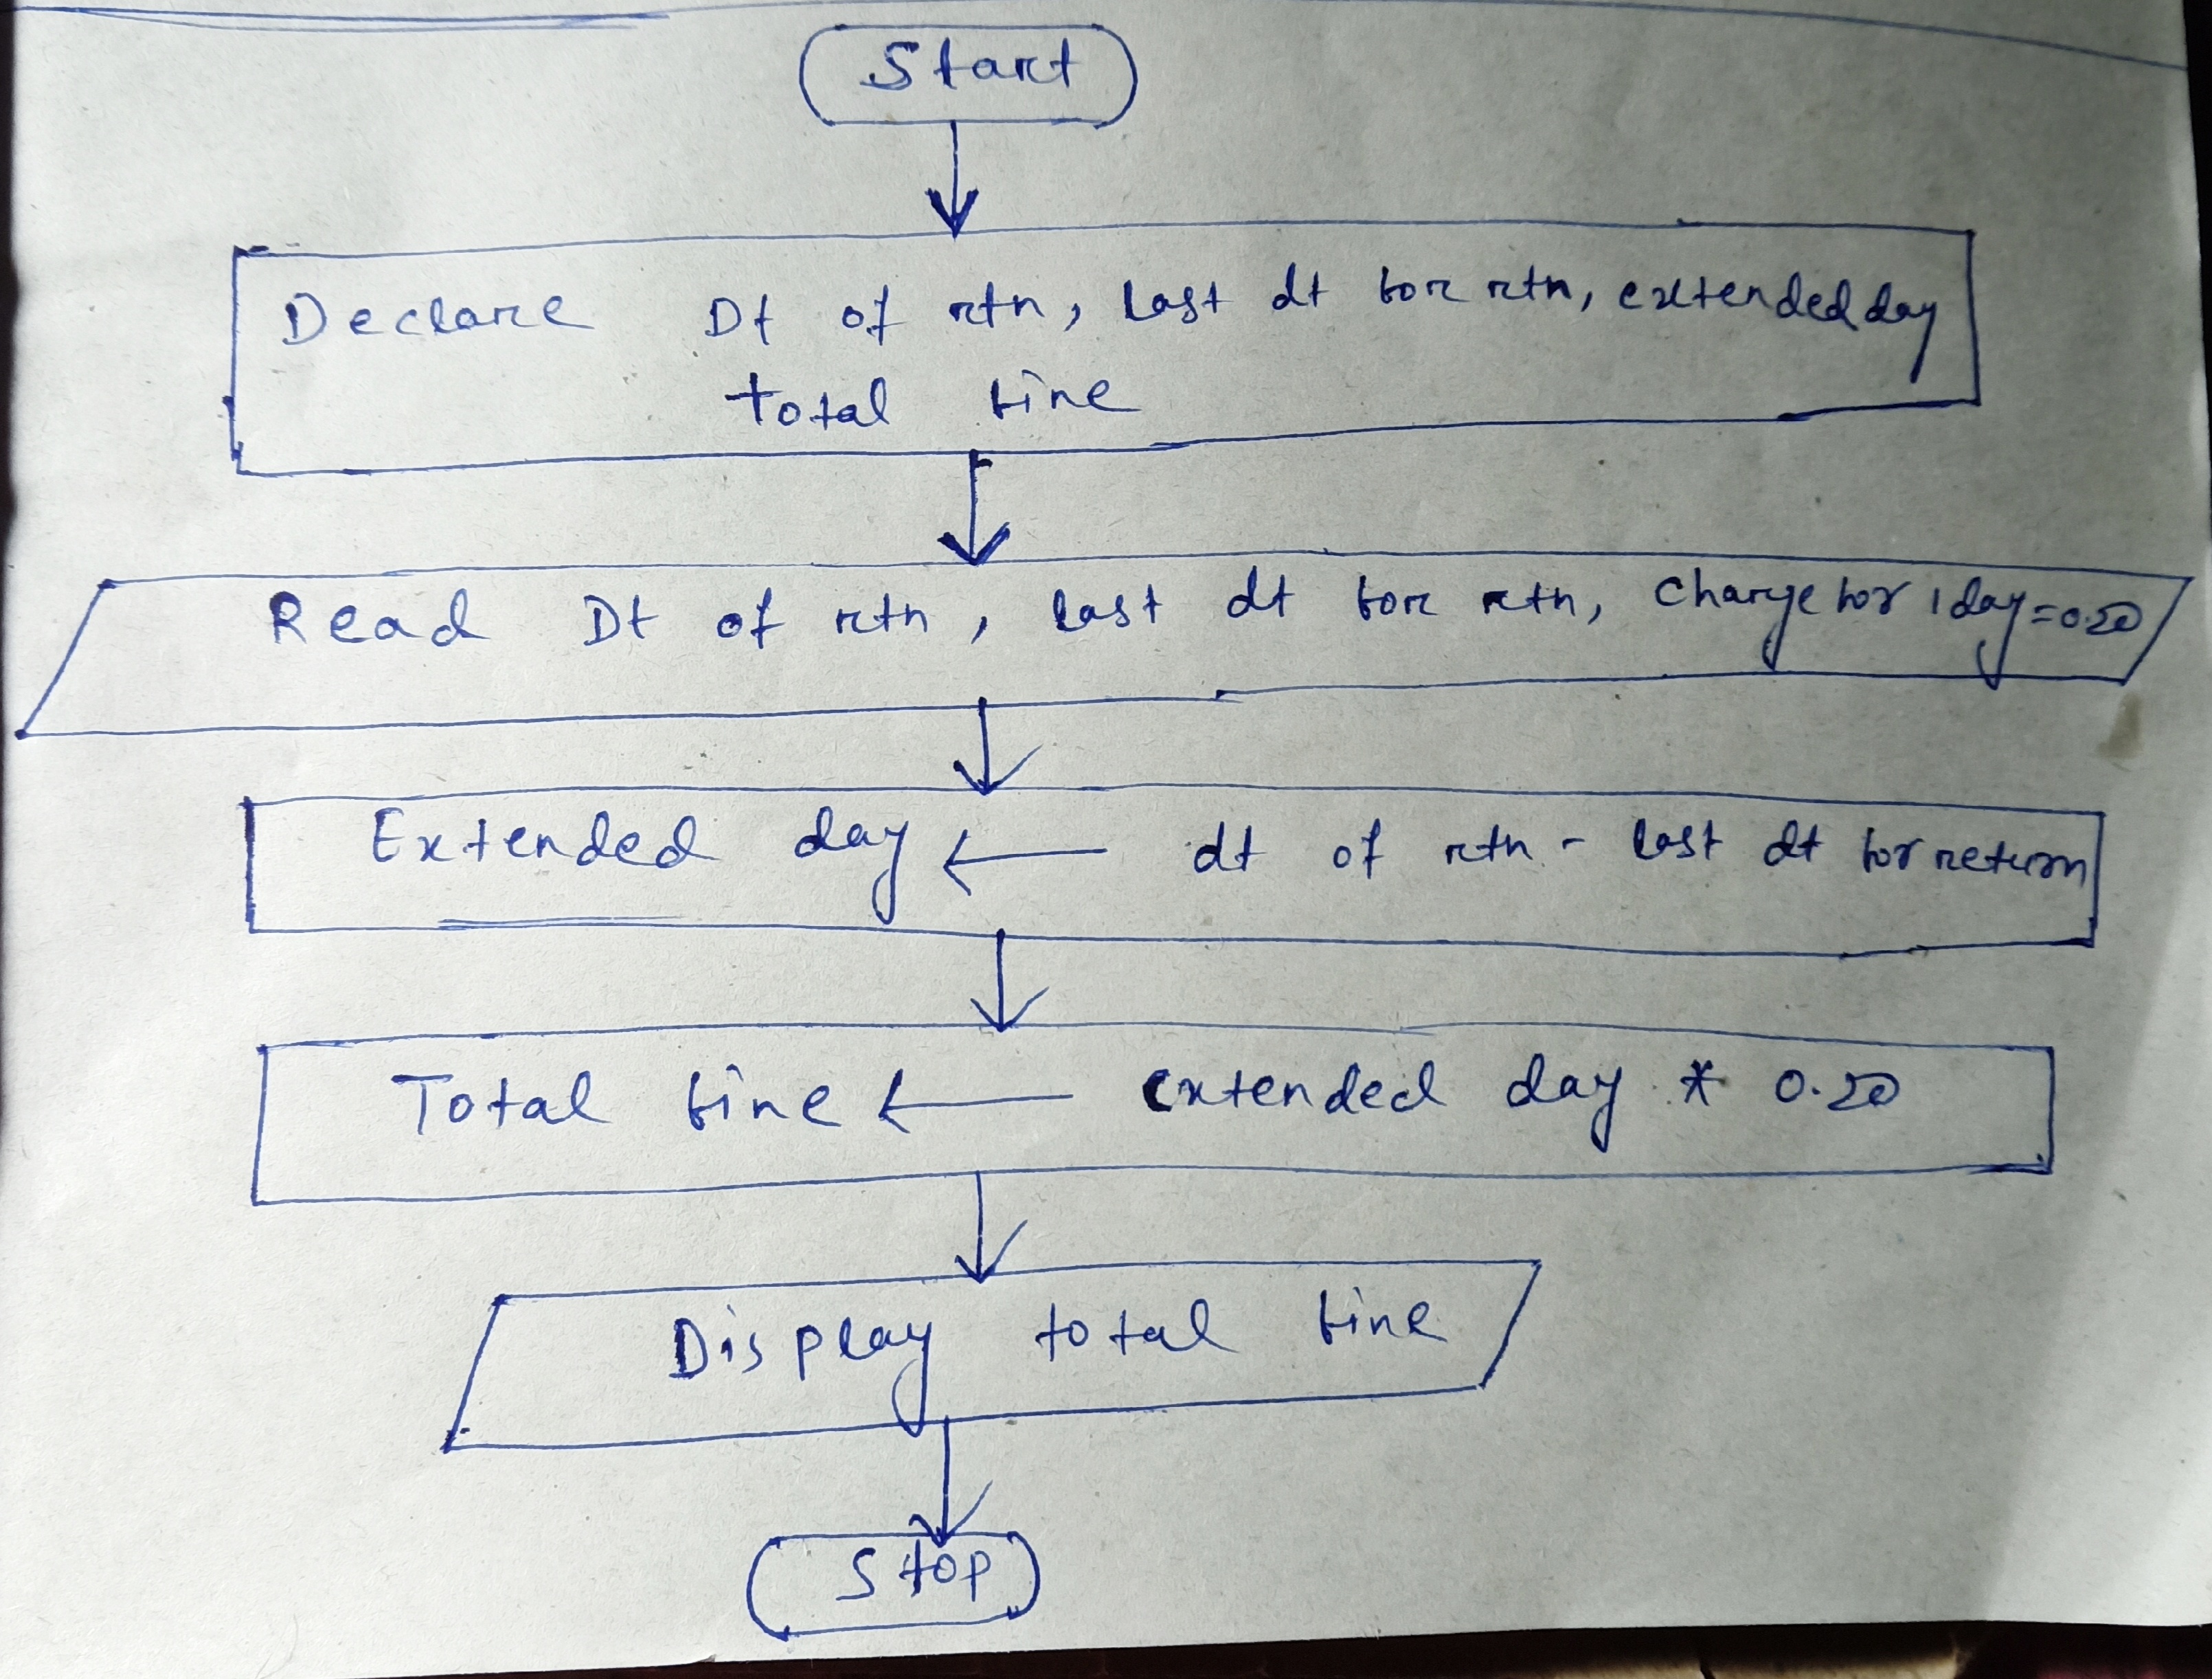 Start
Declare Dt of rtn, last dt for rtn, extended day
total fine
Read Dt of rtn, last dt for rtn, Charge for 1 day=0.20
Extended day ← dt of rtn - last dt for return
Total fine ← extended day * 0.20
Display total fine
Stop